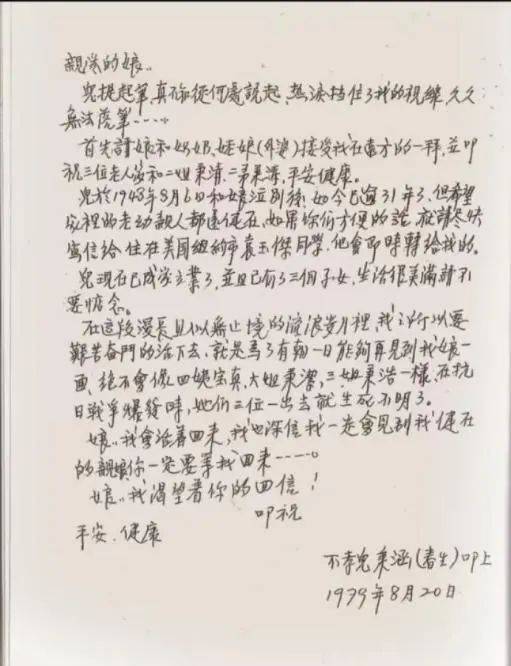 親愛的娘..
兒提起筆,真不知從何處說起,熱淚擋住了我的視線,久久
無法落筆……
首先請娘和奶奶,姥娘(外婆)接受我在遠方的一拜,並叩
祝三位老人家和二姐秉清,二弟秉濤,平安健康。
兒於1948年8月6日和娘泣別後,如今已逾31年了,但希望
家裡的老幼親人都還健在,如果你們方便的話,就請尽快
寫信給住在美国紐約市袁玉傑同學,他會即時轉給我的。
兒現在已成家立業了,並且已有了三個子女,生活很美滿請不
要惦念。
在這段漫長且似無止境的流浪岁月裡,我之所以要
艱苦奮鬥的活下去,就是為了有朝一日能夠再見到我娘一
面,絕不會像四姥宝真,大姐秉潔,三姐秉浩一樣,在抗
日戰爭爆發時,她们三位一出去就生死不明了。
娘..我會活着回来,我也深信我一定會見到我健在
的親娘,你一定要等我回来……
娘..我渴望着你的回信!
叩祝
平安.健康
不孝兒秉涵(春生)叩上
1979年8月20日